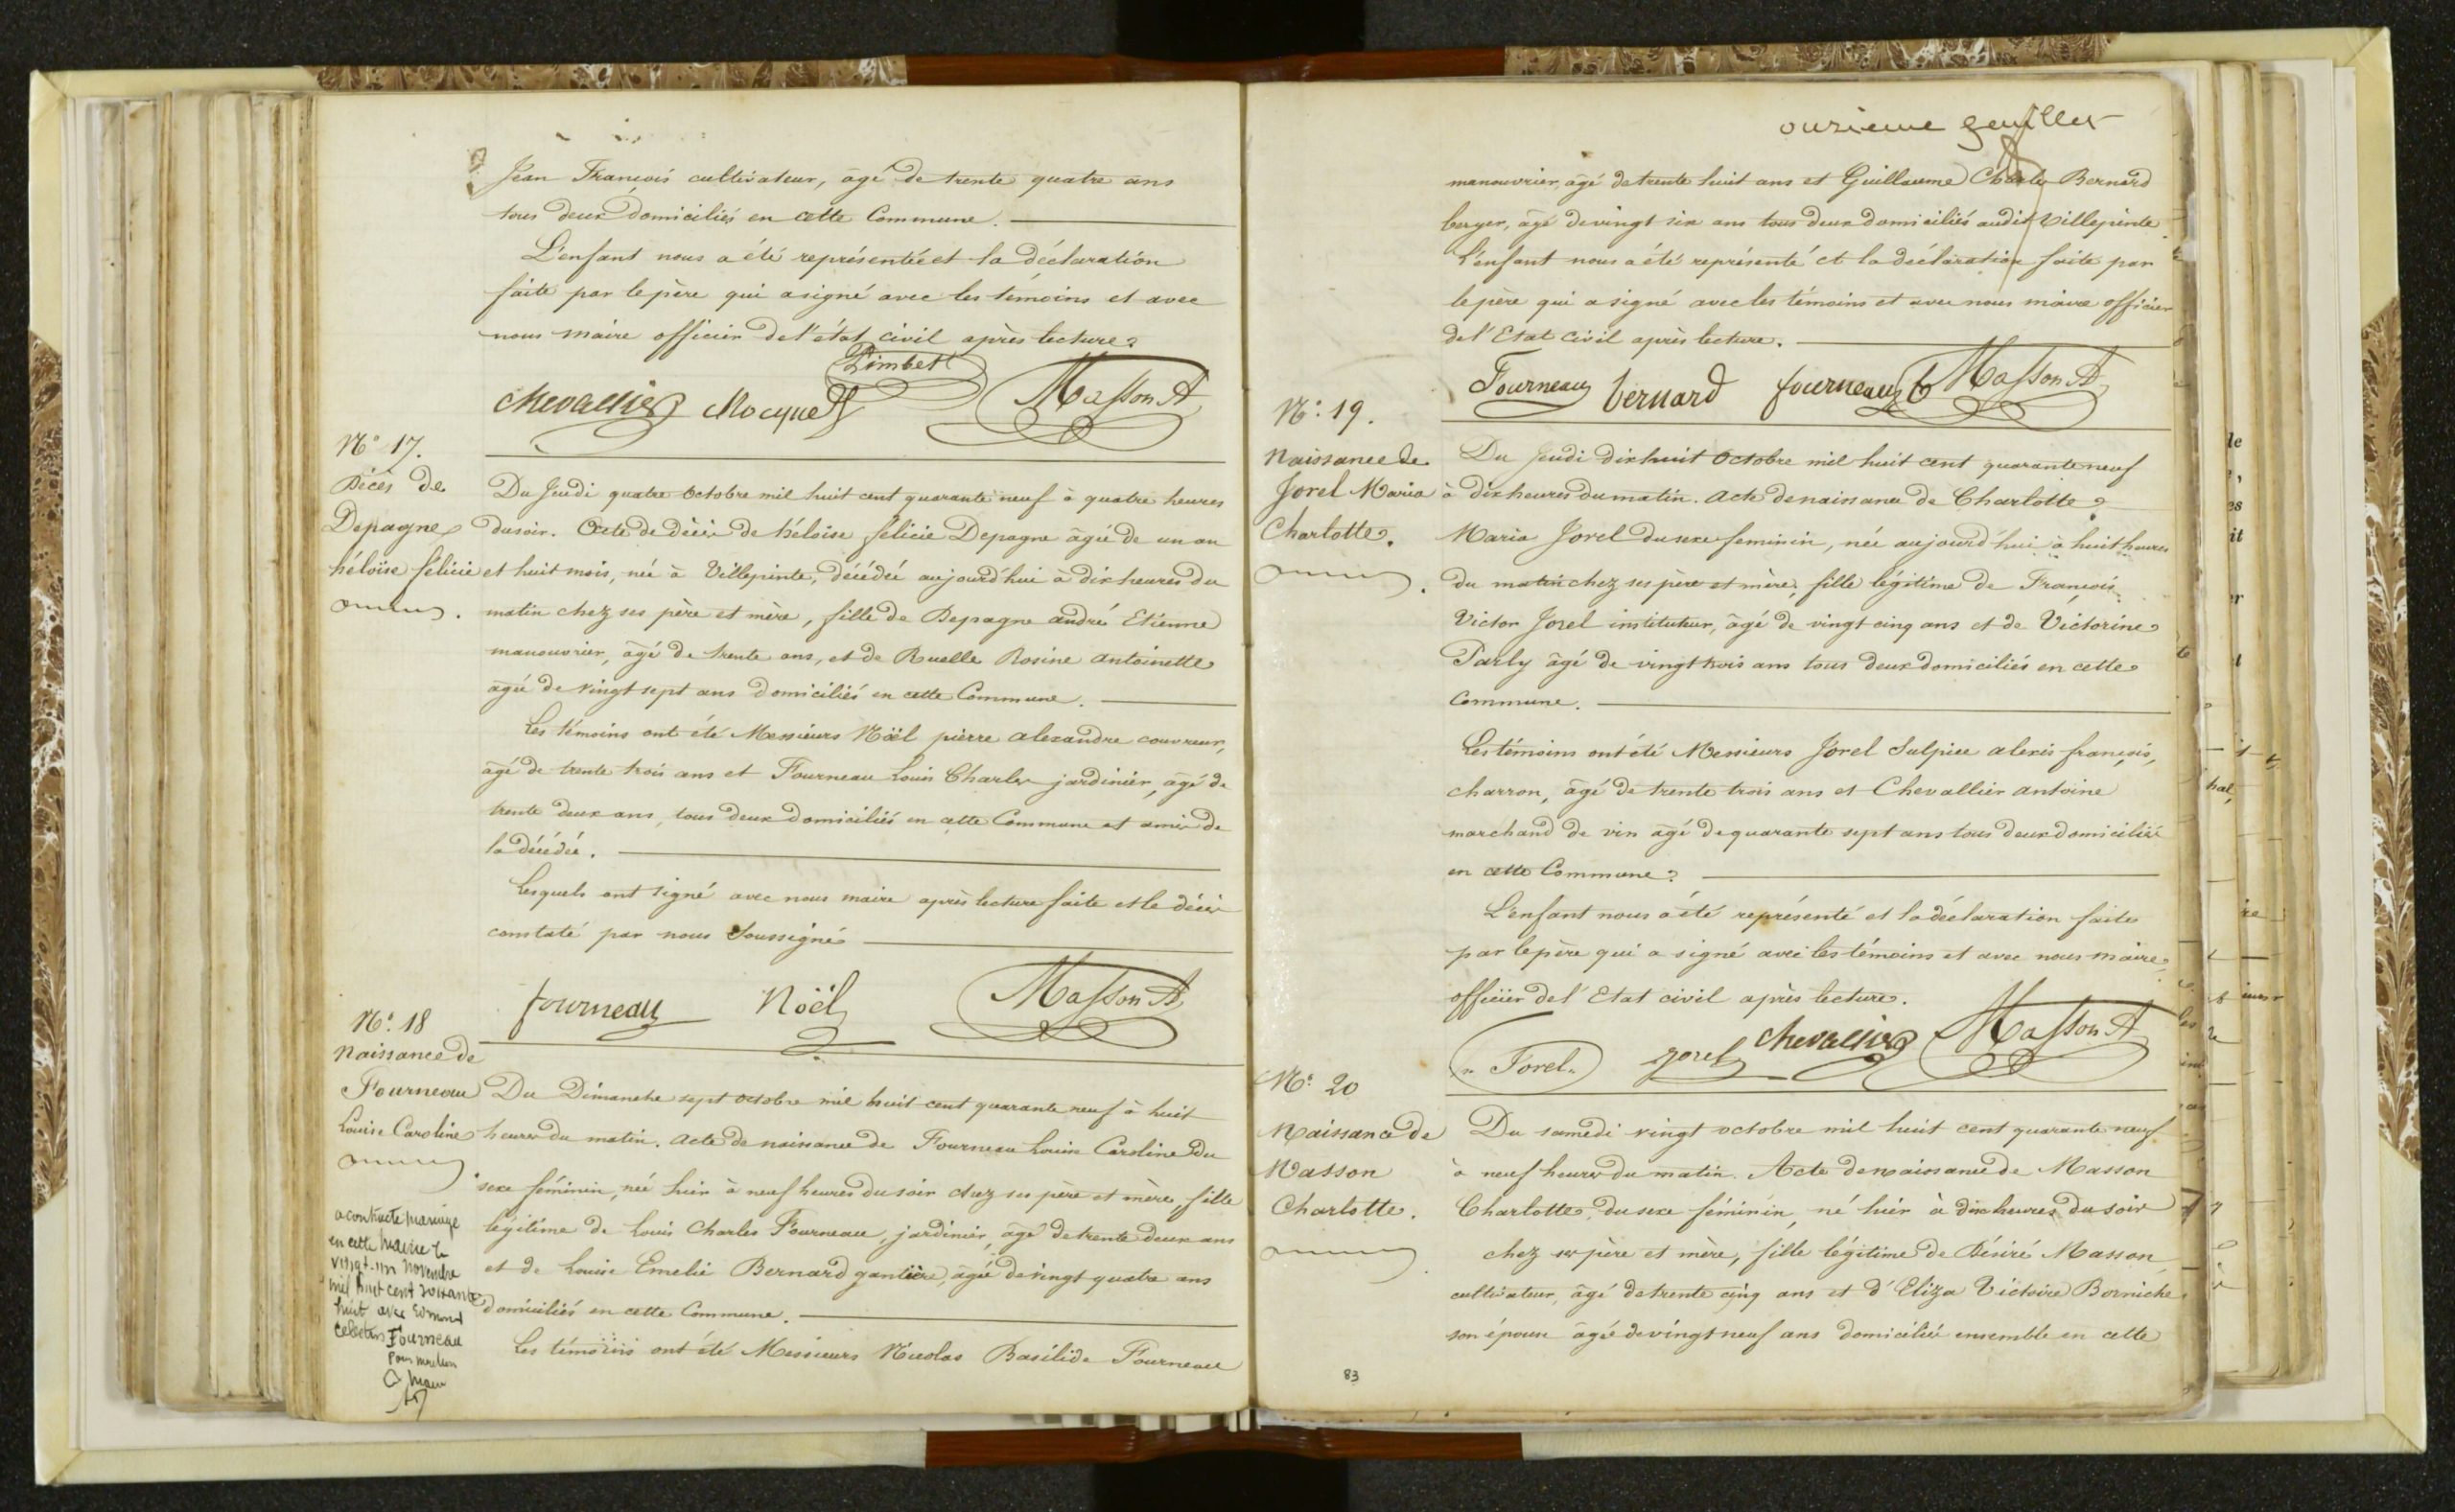 Jean François cultivateur, âgé de trente quatre ans
tous deux domiciliés en cette Commune.
L'enfant nous a été représentée et la déclaration
faite par le père qui a signé avec les témoins et avec
nous maire officier de l'état civil après lecture.
Limbet
chevallier Mocquet Masson A
N° 17.
Décès de
Depagne
héloïse félicie
Du Jeudi quatre octobre mil huit cent quarante neuf à quatre heures
du soir. Acte de décès de héloïse félicie Depagne âgée de un an
et huit mois, née à Villepinte, décédée aujourd'hui à dix heures du
matin chez ses père et mère, fille de Depagne andré Etienne
manouvrier, âgé de trente ans, et de Ruelle Rosine antoinette
agée de vingt sept ans domiciliés en cette Commune.
Les témoins ont été Messieurs Noël pierre alexandre couvreur,
âgé de trente trois ans et Fourneau Louis Charles jardinier, âgé de
trente deux ans, tous deux domiciliés en cette Commune et amis de
la décédée.
Lesquels ont signé avec nous maire après lecture faite et le décès
constaté par nous Soussigné
fourneau Noël Masson A
N° 18
Naissance de
Fourneau
Louise Caroline
Du Dimanche sept octobre mil huit cent quarante neuf à huit
heures du matin. Acte de naissance de Fourneau Louise Caroline du
sexe féminin, née hier à neuf heures du soir chez ses père et mère, fille
légitime de Louis Charles Fourneau, jardinier, âgé de trente deux ans
et de Louise Emelie Bernard gantière, agée de vingt quatre ans
domiciliés en cette Commune.
Les témoins ont été Messieurs Nicolas Basilide Fourneau
a contracté mariage
en cette Mairie le
vingt-un novembre
mil huit cent soixante
huit avec Edmond
Fourneau
Pour mention
Maire
onzieme feuillet
manouvrier, âgé de trente huit ans et Guillaume Charles Bernard
berger, âgé de vingt six ans tous deux domiciliés audit Villepinte.
L'enfant nous a été représenté et la déclaration faite par
le père qui a signé avec les témoins et avec nous maire officier
de l'Etat civil après lecture.
Fourneau bernard fourneau Masson A
N° 19.
Naissance de
Jorel Maria
Charlotte.
Du Jeudi dix huit Octobre mil huit cent quarante neuf
à dix heures du matin. Acte de naissance de Charlotte
Maria Jorel du sexe feminin, née aujourd'hui à huit heures
du matin chez ses père et mère, fille légitime de François
Victor Jorel instituteur, âgé de vingt cinq ans et de Victorine
Parly âgé de vingt trois ans tous deux domiciliés en cette
Commune.
Les témoins ont été Messieurs Jorel Sulpice alexis françois,
charron, âgé de trente trois ans et Chevallier antoine
marchand de vin agé de quarante sept ans tous deux domiciliés
en cette Commune.
L'enfant nous a été représenté et la déclaration faite
par le père qui a signé avec les témoins et avec nous maire
officier de l'Etat civil après lecture.
Jorel jorel chevallier Masson A
N° 20
Naissance de
Masson
Charlotte.
Du samedi vingt octobre mil huit cent quarante neuf
à neuf heures du matin. Acte de naissance de Masson
Charlotte, du sexe féminin, né hier à dix heures du soir
chez ses père et mère, fille légitime de Désiré Masson
cultivateur, âgé de trente cinq ans et d'Eliza Victoire Borniche
son épouse âgée de vingt neuf ans domiciliés ensemble en cette
83